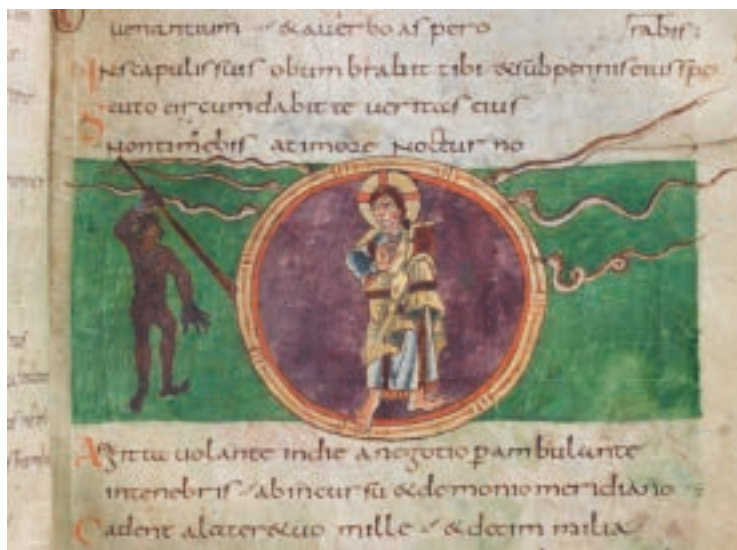 uenantium & auerbo aspero
Inscapulissuis obumbrabit tibi &subpenniseius spe
rabis:
Scuto circumdabitte ueritas eius
Nontimebis atimore nocturno
Asagitta uolante indie anegotio pambulante
intenebris abincursu &demoniomeridiano
Cadent alatere tuo mille & decim milia